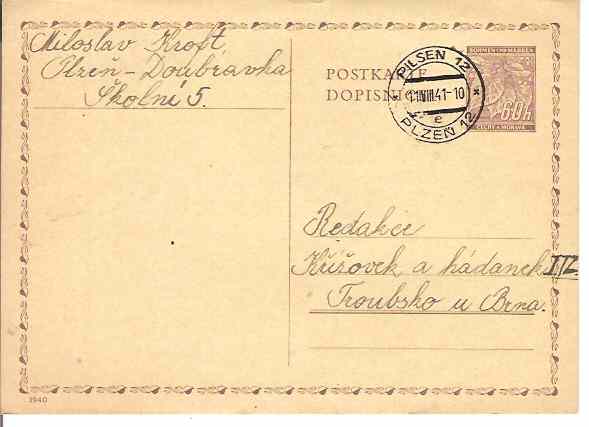 Miloslav Kroft,
Plzeň-Doubravka
Školní 5.
POSTKARTE
DOPISNICE
PILSEN 12
41-10
e
PLZEŇ 12
BÖHMEN UND MÄHREN
60h
ČECHY A MORAVA
Redakce
Křížovek a hádanek
Troubsko u Brna.
1940